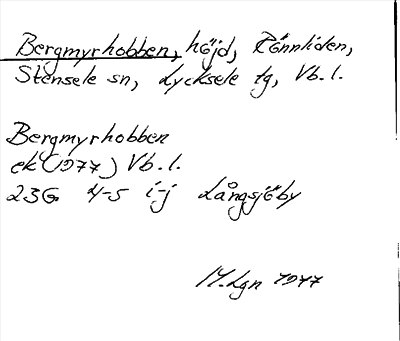 Bergmyrhobben, höjd, Rönnliden,
Stensele sn, Lycksele tg, Vb. l.
Bergmyrhobben
ek (1977) Vb. l.
23G 4-5 i-j Långsjöby
M. Lgn 1977